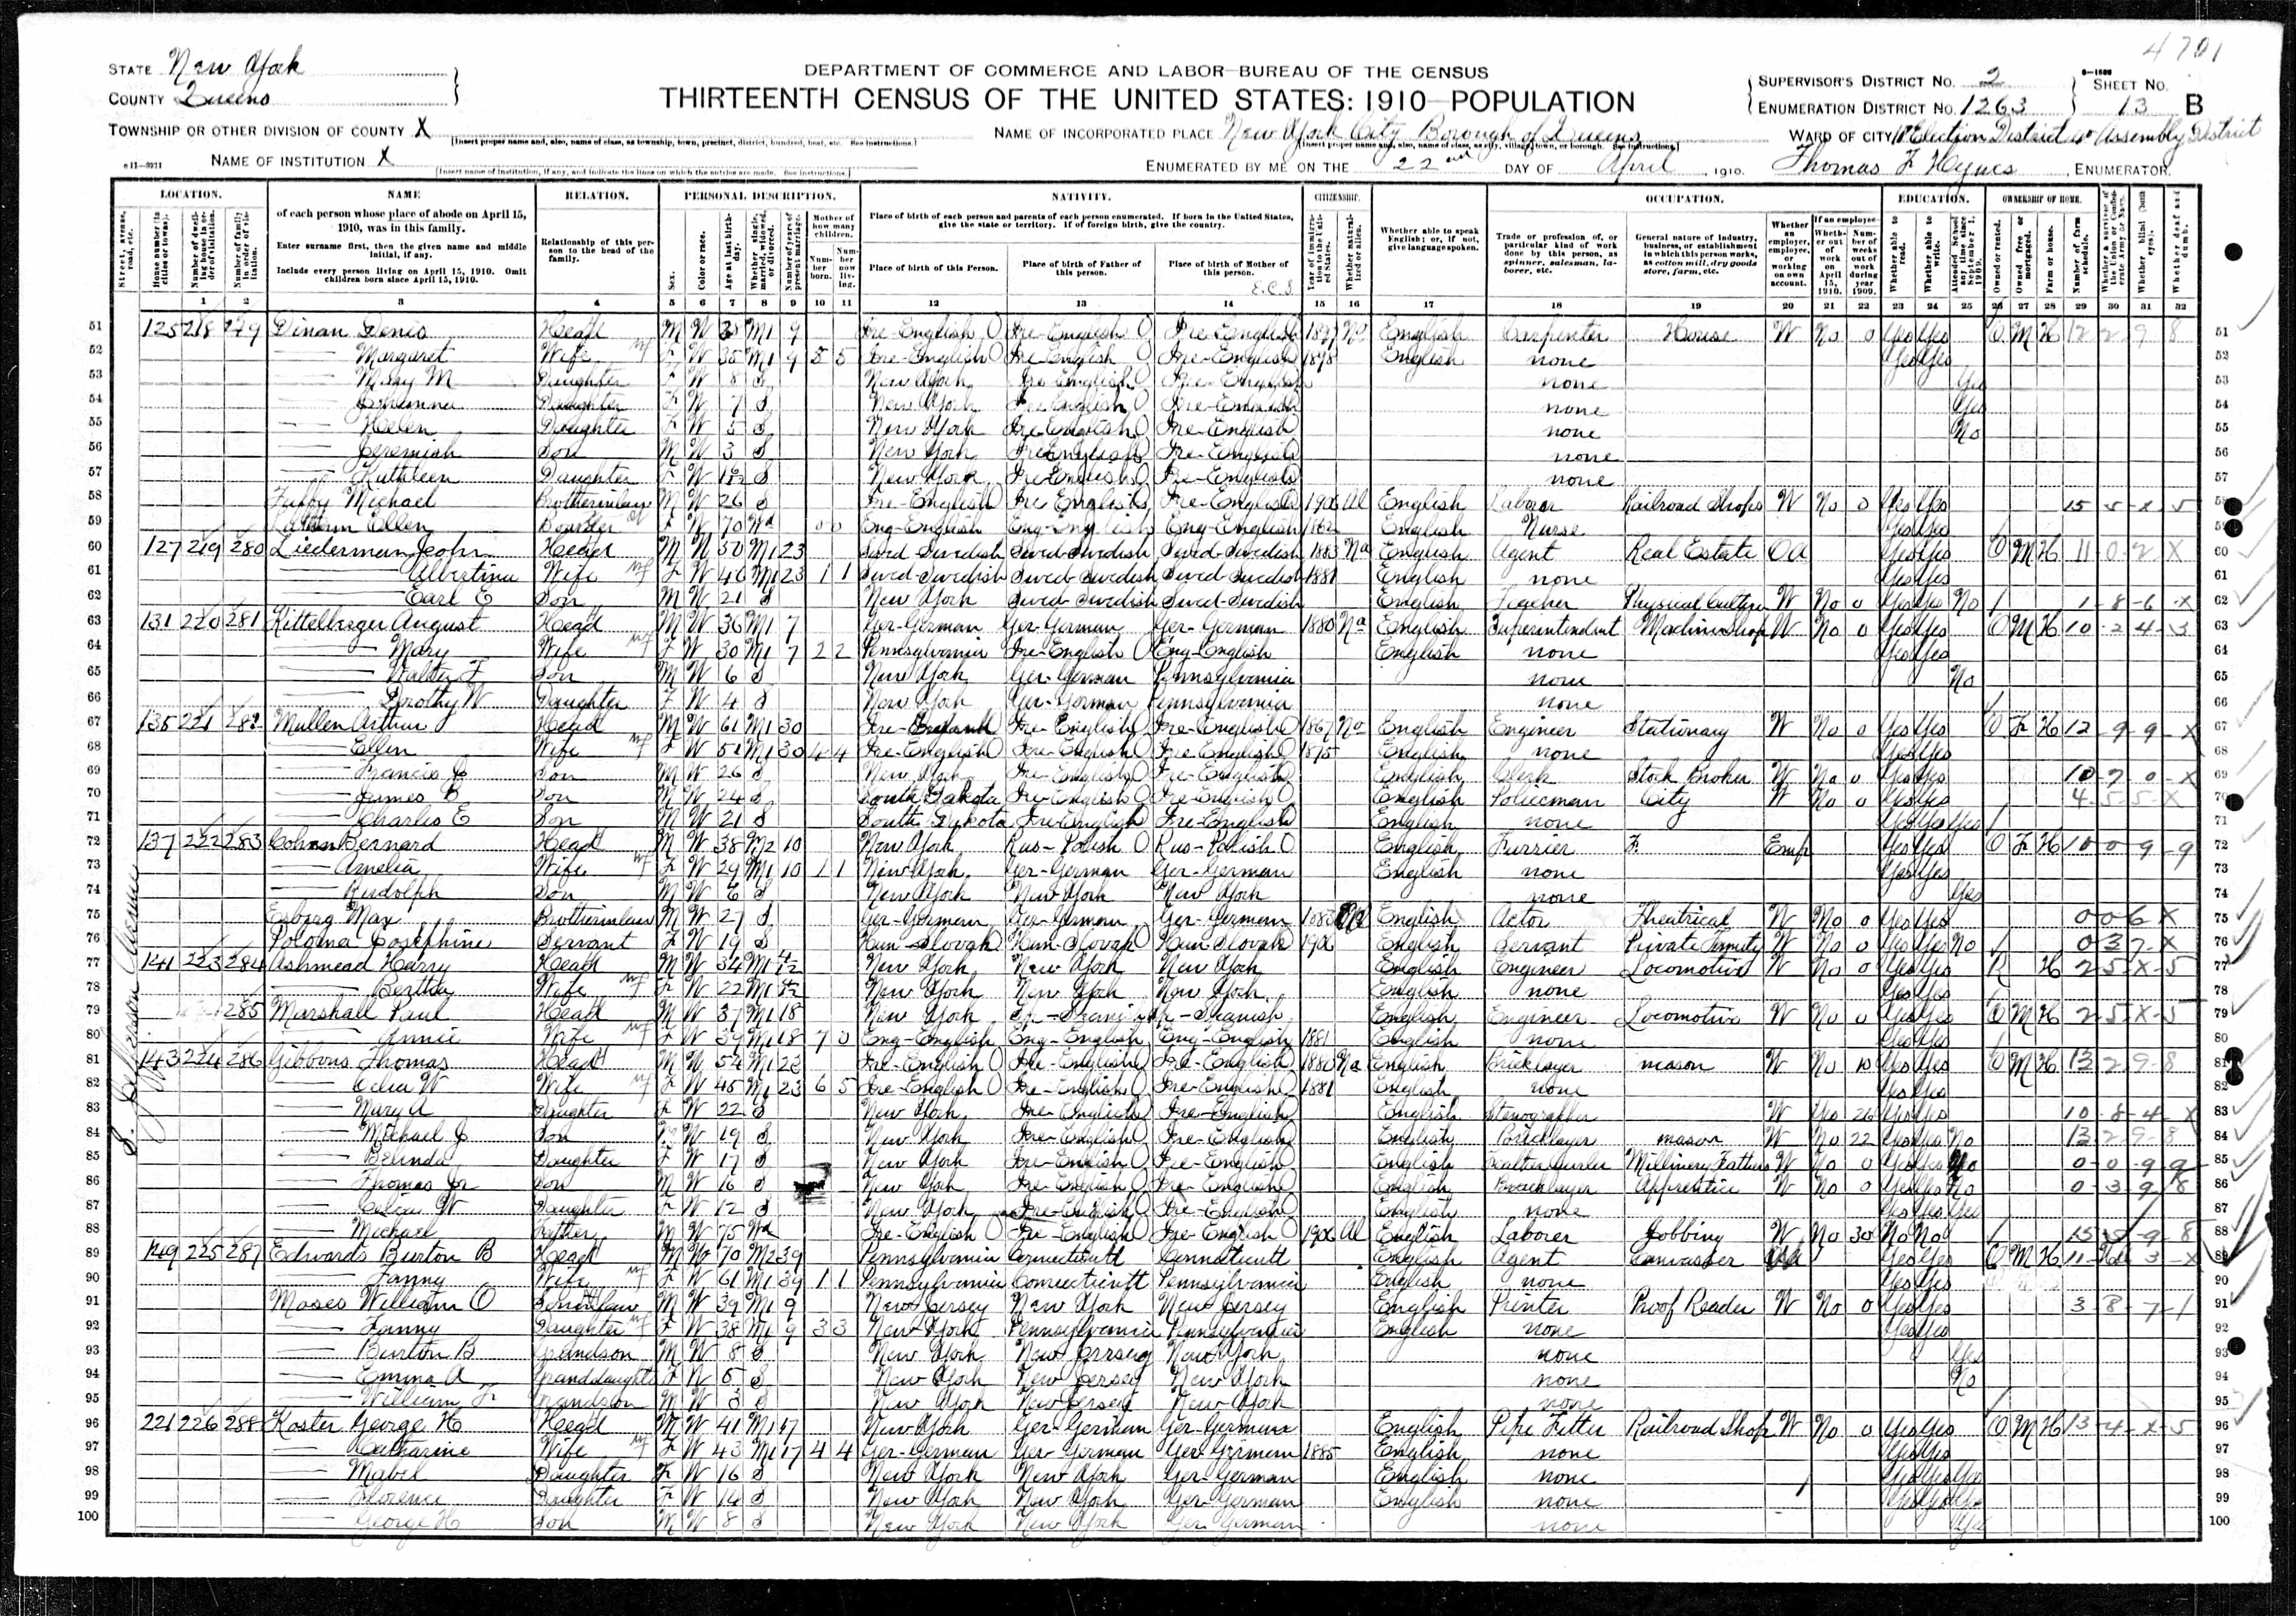 4701
STATE New York
COUNTY Queens
DEPARTMENT OF COMMERCE AND LABOR—BUREAU OF THE CENSUS
THIRTEENTH CENSUS OF THE UNITED STATES: 1910—POPULATION
SUPERVISOR'S DISTRICT No. 2
ENUMERATION DISTRICT No. 1263
SHEET No. 13 B
TOWNSHIP OR OTHER DIVISION OF COUNTY X
[Insert proper name and, also, name of class, as township, town, precinct, district, hundred, beat, etc. See instructions.]
NAME OF INCORPORATED PLACE New York City Borough of Queens
[Insert proper name and, also, name of class, as city, village, town, or borough. See instructions.]
WARD OF CITY Election District Assembly District
NAME OF INSTITUTION X
[Insert name of institution, if any, and indicate the lines on which the entries are made. See instructions.]
ENUMERATED BY ME ON THE 22nd DAY OF April, 1910.
Thomas F Hynes, ENUMERATOR.
LOCATION. NAME RELATION. PERSONAL DESCRIPTION. NATIVITY. CITIZENSHIP. OCCUPATION. EDUCATION. OWNERSHIP OF HOME.
of each person whose place of abode on April 15, 1910, was in this family.
Enter surname first, then the given name and middle initial, if any.
Include every person living on April 15, 1910. Omit children born since April 15, 1910.
Relationship of this person to the head of the family.
Place of birth of each person and parents of each person enumerated. If born in the United States, give the state or territory. If of foreign birth, give the country.
Place of birth of this Person. Place of birth of Father of this person. Place of birth of Mother of this person.
Whether able to speak English; or, if not, give language spoken.
Trade or profession of, or particular kind of work done by this person, as spinner, salesman, laborer, etc.
General nature of industry, business, or establishment in which this person works, as cotton mill, dry goods store, farm, etc.
1 2 3 4 5 6 7 8 9 10 11 12 13 14 15 16 17 18 19 20 21 22 23 24 25 26 27 28 29 30 31 32
51 125 218 279 Dinan Denis Head M W M1 9 Ire-English Ire-English Ire-English 1897 Na English Carpenter House W No 0 Yes Yes O M H 12 2 9 8
52 Margaret Wife F W 35 M1 9 5 5 Ire-English Ire-English Ire-English 1898 English none Yes Yes
53 May M Daughter F W 8 S New York Ire-English Ire-English none Yes
54 Daughter F W 7 S New York Ire-English Ire-English none Yes
55 Helen Daughter F W 5 S New York Ire-English Ire-English none No
56 Jeremiah Son M W 3 S New York Ire-English Ire-English none
57 Kathleen Daughter F W S New York Ire-English Ire-English none
58 Michael Brotherinlaw M W 26 S Ire-English Ire-English Ire-English 1906 Al English Laborer Railroad Shops W No 0 Yes Yes 15 5 X 5
59 Ellen Boarder F W 70 Wd 0 0 Eng-English Eng-English Eng-English 1862 English Nurse Yes Yes
60 127 219 280 Liederman John Head M W 50 M1 23 Swed-Swedish Swed-Swedish Swed-Swedish 1883 Na English Agent Real Estate OA Yes Yes O M H 11 0 2 X
61 Albertina Wife F W 46 M1 23 1 1 Swed-Swedish Swed-Swedish Swed-Swedish 1881 English none Yes Yes
62 Earl E Son M W 21 S New York Swed-Swedish Swed-Swedish English Teacher Physical Culture W No 0 Yes Yes No 1 8 6 X
63 131 220 281 Kittelberger August Head M W 36 M1 7 Ger-German Ger-German Ger-German 1880 Na English Superintendant Machine Shop W No 0 Yes Yes O M H 10 2 4 3
64 Mary Wife F W 30 M1 7 2 2 Pennsylvania Ire-English Eng-English English none Yes Yes
65 Walter F Son M W 6 S New York Ger-German Pennsylvania none No
66 Dorothy W Daughter F W 4 S New York Ger-German Pennsylvania none
67 135 221 282 Mullen Arthur Head M W 61 M1 30 Ire-English Ire-English Ire-English 1867 Na English Engineer Stationary W No 0 Yes Yes O F H 12 9 9 X
68 Ellen Wife F W 51 M1 30 4 4 Ire-English Ire-English Ire-English 1875 English none Yes Yes
69 Francis J Son M W 26 S New York Ire-English Ire-English English Clerk Stock Broker W No 0 Yes Yes 10 7 0 X
70 James B Son M W 24 S South Dakota Ire-English Ire-English English Policeman City W No 0 Yes Yes 4 5 5 X
71 Charles E Son M W 21 S South Dakota Ire-English Ire-English English none Yes Yes Yes
72 137 222 283 Cohan Bernard Head M W 38 M2 10 New York Rus-Polish Rus-Polish English Furrier F Emp Yes Yes O F H 10 0 9 9
73 Amelia Wife F W 29 M1 10 1 1 New York Ger-German Ger-German English none Yes Yes
74 Rudolph Son M W 6 S New York New York New York none Yes
75 Max Brotherinlaw M W 27 S Ger-German Ger-German Ger-German English Actor Theatrical W No 0 Yes Yes 0 0 6 X
76 Josephine Servant F W 19 S Hun-Slovak Hun-Slovak Hun-Slovak 1906 English Servant Private Family W No 0 Yes Yes No 0 3 7 X
77 141 223 284 Ashmead Harry Head M W 34 M1 New York New York New York English Engineer Locomotive W No 0 Yes Yes R H 2 5 X 5
78 Bertha Wife F W 22 M1 New York New York New York English none Yes Yes
79 285 Marshall Paul Head M W 37 M1 18 New York Sp-Spanish Sp-Spanish English Engineer Locomotive W No 0 Yes Yes O M H 2 5 X 5
80 Annie Wife F W 39 M1 18 7 0 Eng-English Eng-English Eng-English 1881 English none Yes Yes
81 143 224 286 Gibbons Thomas Head M W 54 M1 23 Ire-English Ire-English Ire-English 1880 Na English Bricklayer mason W No 10 Yes Yes O M H 13 2 9 8
82 Celia W Wife F W 45 M1 23 6 5 Ire-English Ire-English Ire-English 1881 English none Yes Yes
83 Mary A Daughter F W 22 S New York Ire-English Ire-English English Stenographer W Yes 26 Yes Yes 10 8 4 X
84 Michael J Son M W 19 S New York Ire-English Ire-English English Bricklayer mason W No 22 Yes Yes No 13 2 9 8
85 Belinda Daughter F W 17 S New York Ire-English Ire-English English Millinery W No 0 Yes Yes No 0 0 9 9
86 Thomas Jr Son M W 16 S New York Ire-English Ire-English English Bricklayer Apprentice W No 0 Yes Yes No 0 3 9 8
87 Celia W Daughter F W 12 S New York Ire-English Ire-English English none Yes Yes Yes
88 Michael Father M W 75 Wd Ire-English Ire-English Ire-English 1906 Al English Laborer Jobbing W No 30 No No 15 9 8
89 149 225 287 Edwards Burton B Head M W 70 M2 39 Pennsylvania Connecticutt Connecticutt English Agent Canvasser OA Yes Yes O M H 11 3 X
90 Fanny Wife F W 61 M1 39 1 1 Pennsylvania Connecticutt Pennsylvania English none Yes Yes
91 Moses William O Soninlaw M W 39 M1 9 New Jersey New York New Jersey English Printer Proof Reader W No 0 Yes Yes 3 8 7 1
92 Fanny Daughter F W 38 M1 9 3 3 New York Pennsylvania Pennsylvania English none Yes Yes
93 Burton B Grandson M W 8 S New York New Jersey New York none Yes
94 Emma A Granddaughter F W S New York New Jersey New York none No
95 William Jr Grandson M W 3 S New York New Jersey New York none
96 221 226 288 Koster George H Head M W 41 M1 17 New York Ger-German Ger-German English Pipe Fitter Railroad Shop W No 0 Yes Yes O M H 13 4 X 5
97 Catharine Wife F W 43 M1 17 4 4 Ger-German Ger-German Ger-German 1885 English none Yes Yes
98 Mabel Daughter F W 16 S New York New York Ger-German English none Yes Yes Yes
99 Florence Daughter F W 14 S New York New York Ger-German English none Yes Yes Yes
100 George H Son M W 8 S New York New York Ger-German none Yes
S. Jefferson Avenue